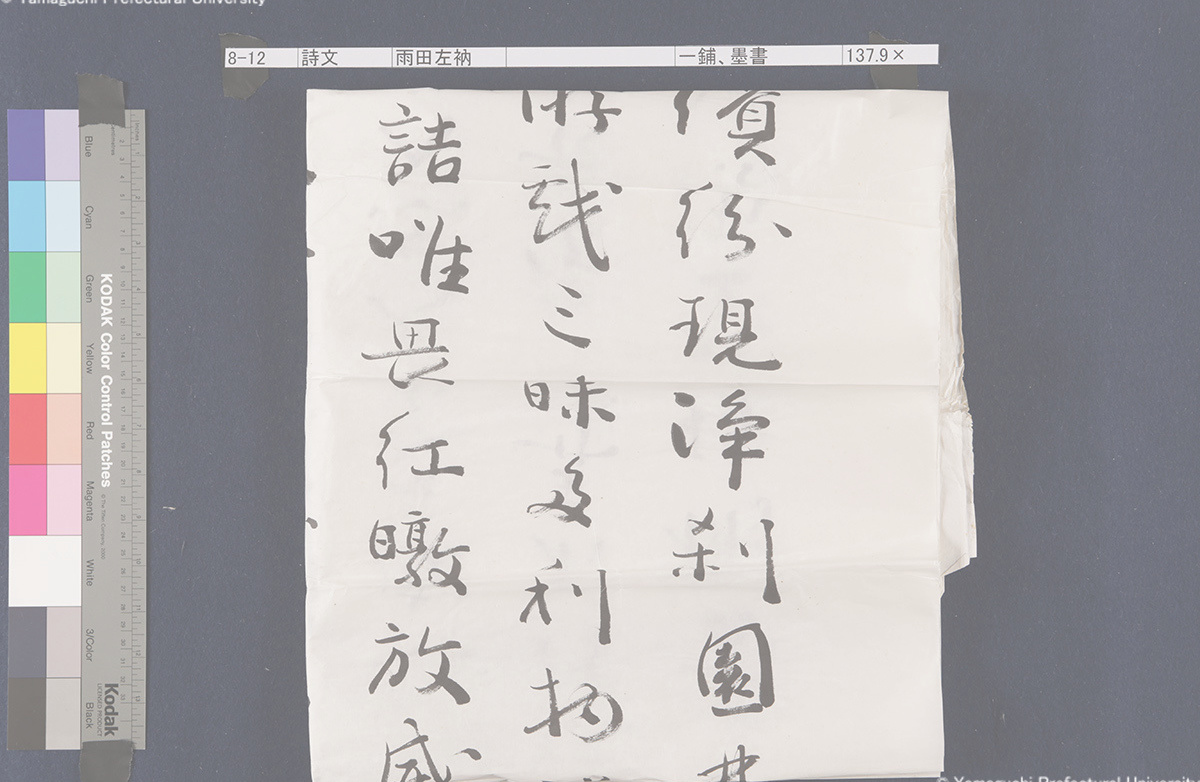 © Yamaguchi Prefectural University
8-12 詩文 雨田左衲 一鋪、墨書 137.9×
繽紛現淨刹園
游戲三昧多利物
詰唯畏紅暾放
KODAK Color Control Patches
© The Tiffen Company, 2000
Kodak
LICENSED PRODUCT
Blue
Cyan
Green
Yellow
Red
Magenta
White
3/Color
Black
© Yamaguchi Prefectural Univers